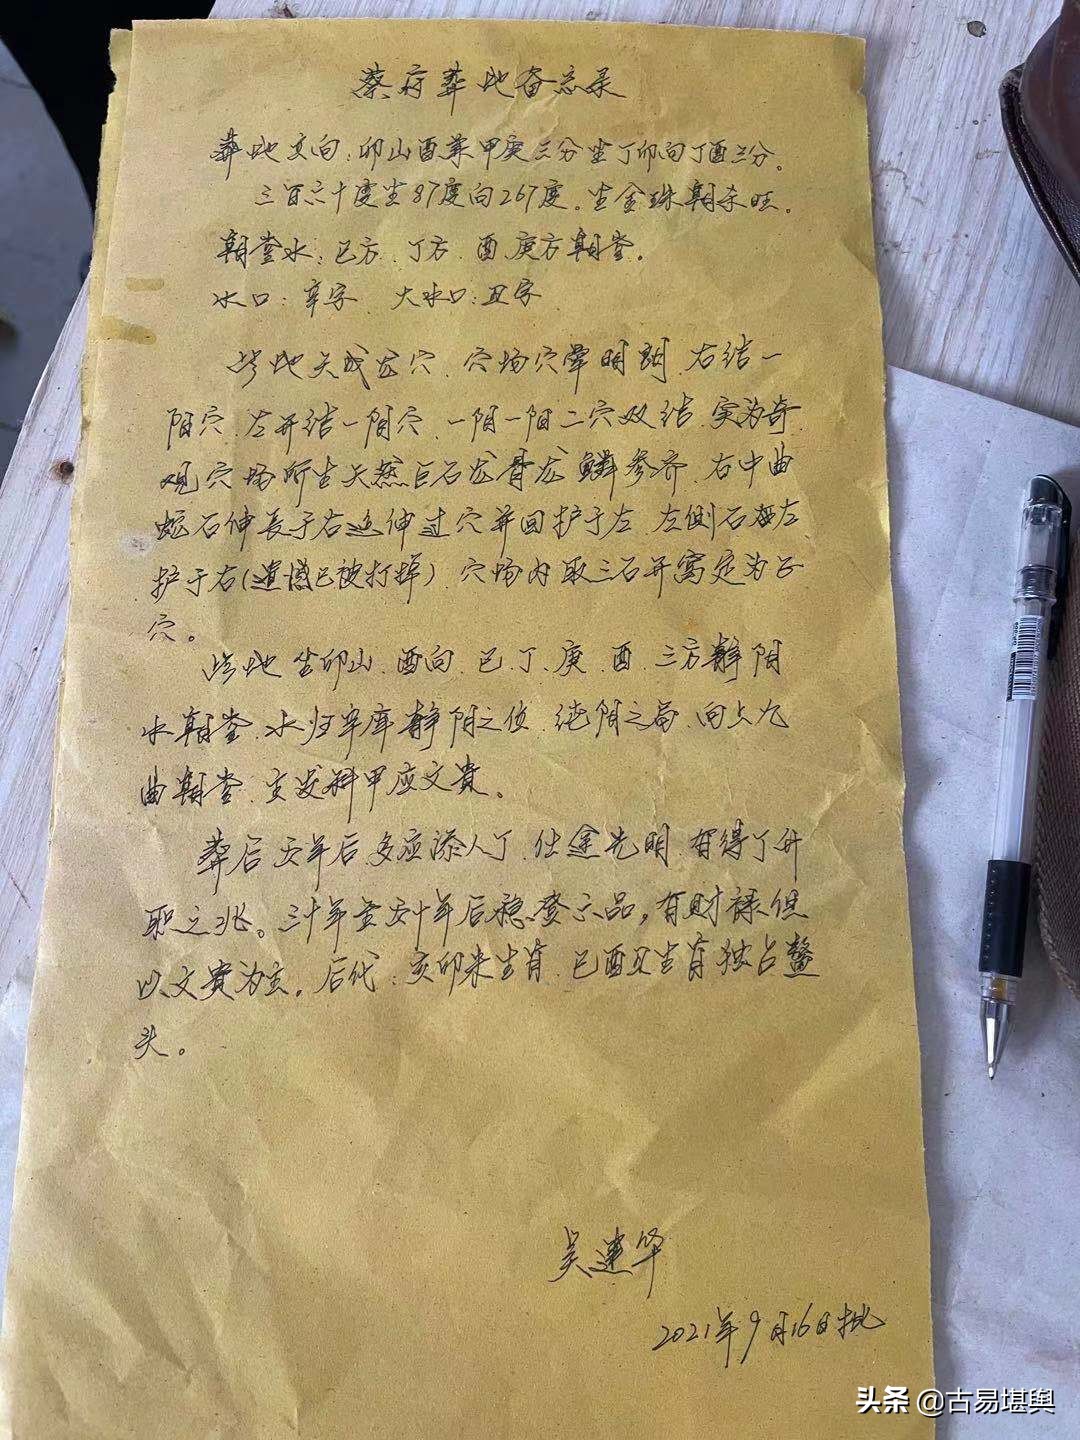 蔡府葬地备忘录
葬地文向:卯山酉兼甲庚三分坐丁卯向丁酉三分。
三百六十度坐87度向267度。坐金珠朝来旺。
朝堂水:巳方、丁方、酉、庚方朝堂。
水口:辛字、大水口:丑字
此地天成龙穴、穴场穴晕明朗、右结一
阳穴、左并结一阴穴、一阴一阳二穴双结、实为奇
观穴场所生天然巨石龙骨龙鳞参齐、右中曲
蛇石伸长于右延伸过穴并回护于左、左侧石左
护于右(遗憾已被打掉)、穴场内取三石开窝定为正
穴。
此地坐卯山、酉向、巳、丁、庚、酉、三方静阴
水朝堂、水归库静阴之位、纯阴之局、向上九
曲朝堂、主发科甲应文贵。
葬后五年后多应添人丁、仕途光明、有得丁升
职之兆。三十年至五十年后稳登六品,有财禄但
以文贵为主。后代:亥卯未生肖、巳酉丑生肖独占鳌
头。
吴建华
2021年9月16日批
头条@古易堪舆